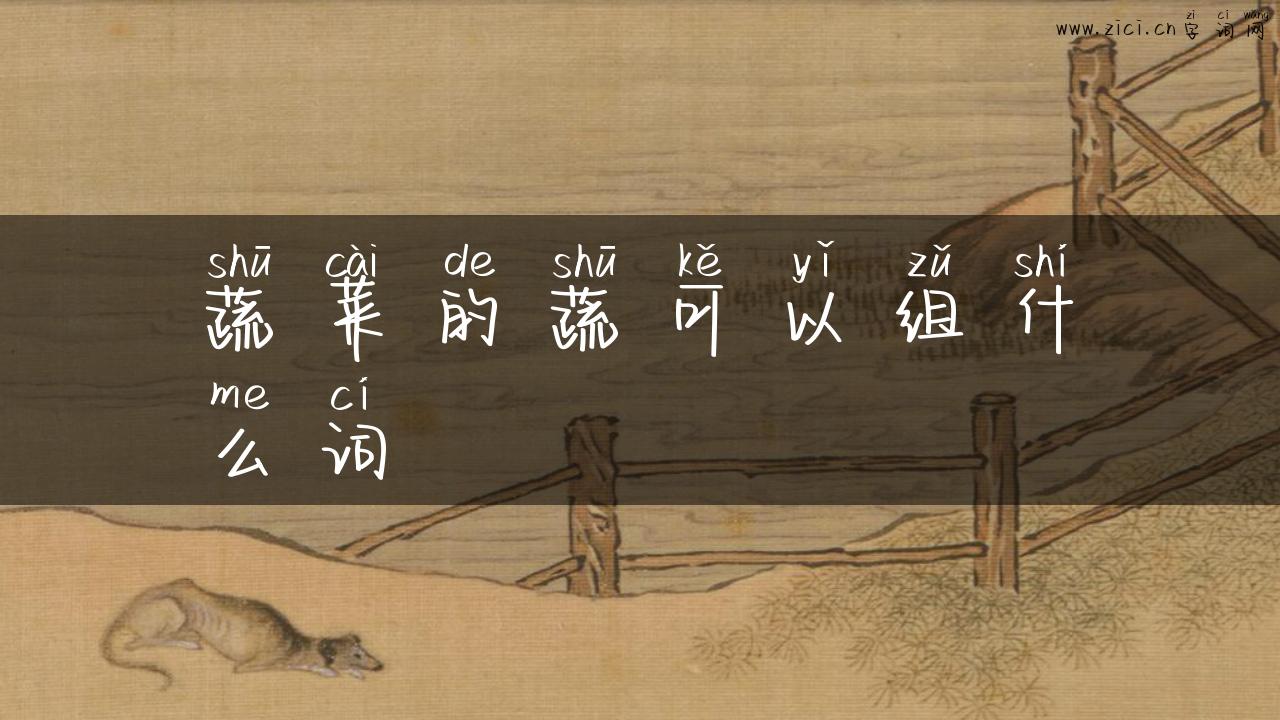 zi ci wang
www.zici.cn 字词网
shū cài de shū kě yǐ zǔ shí
蔬菜的蔬可以组什
me cí
么词